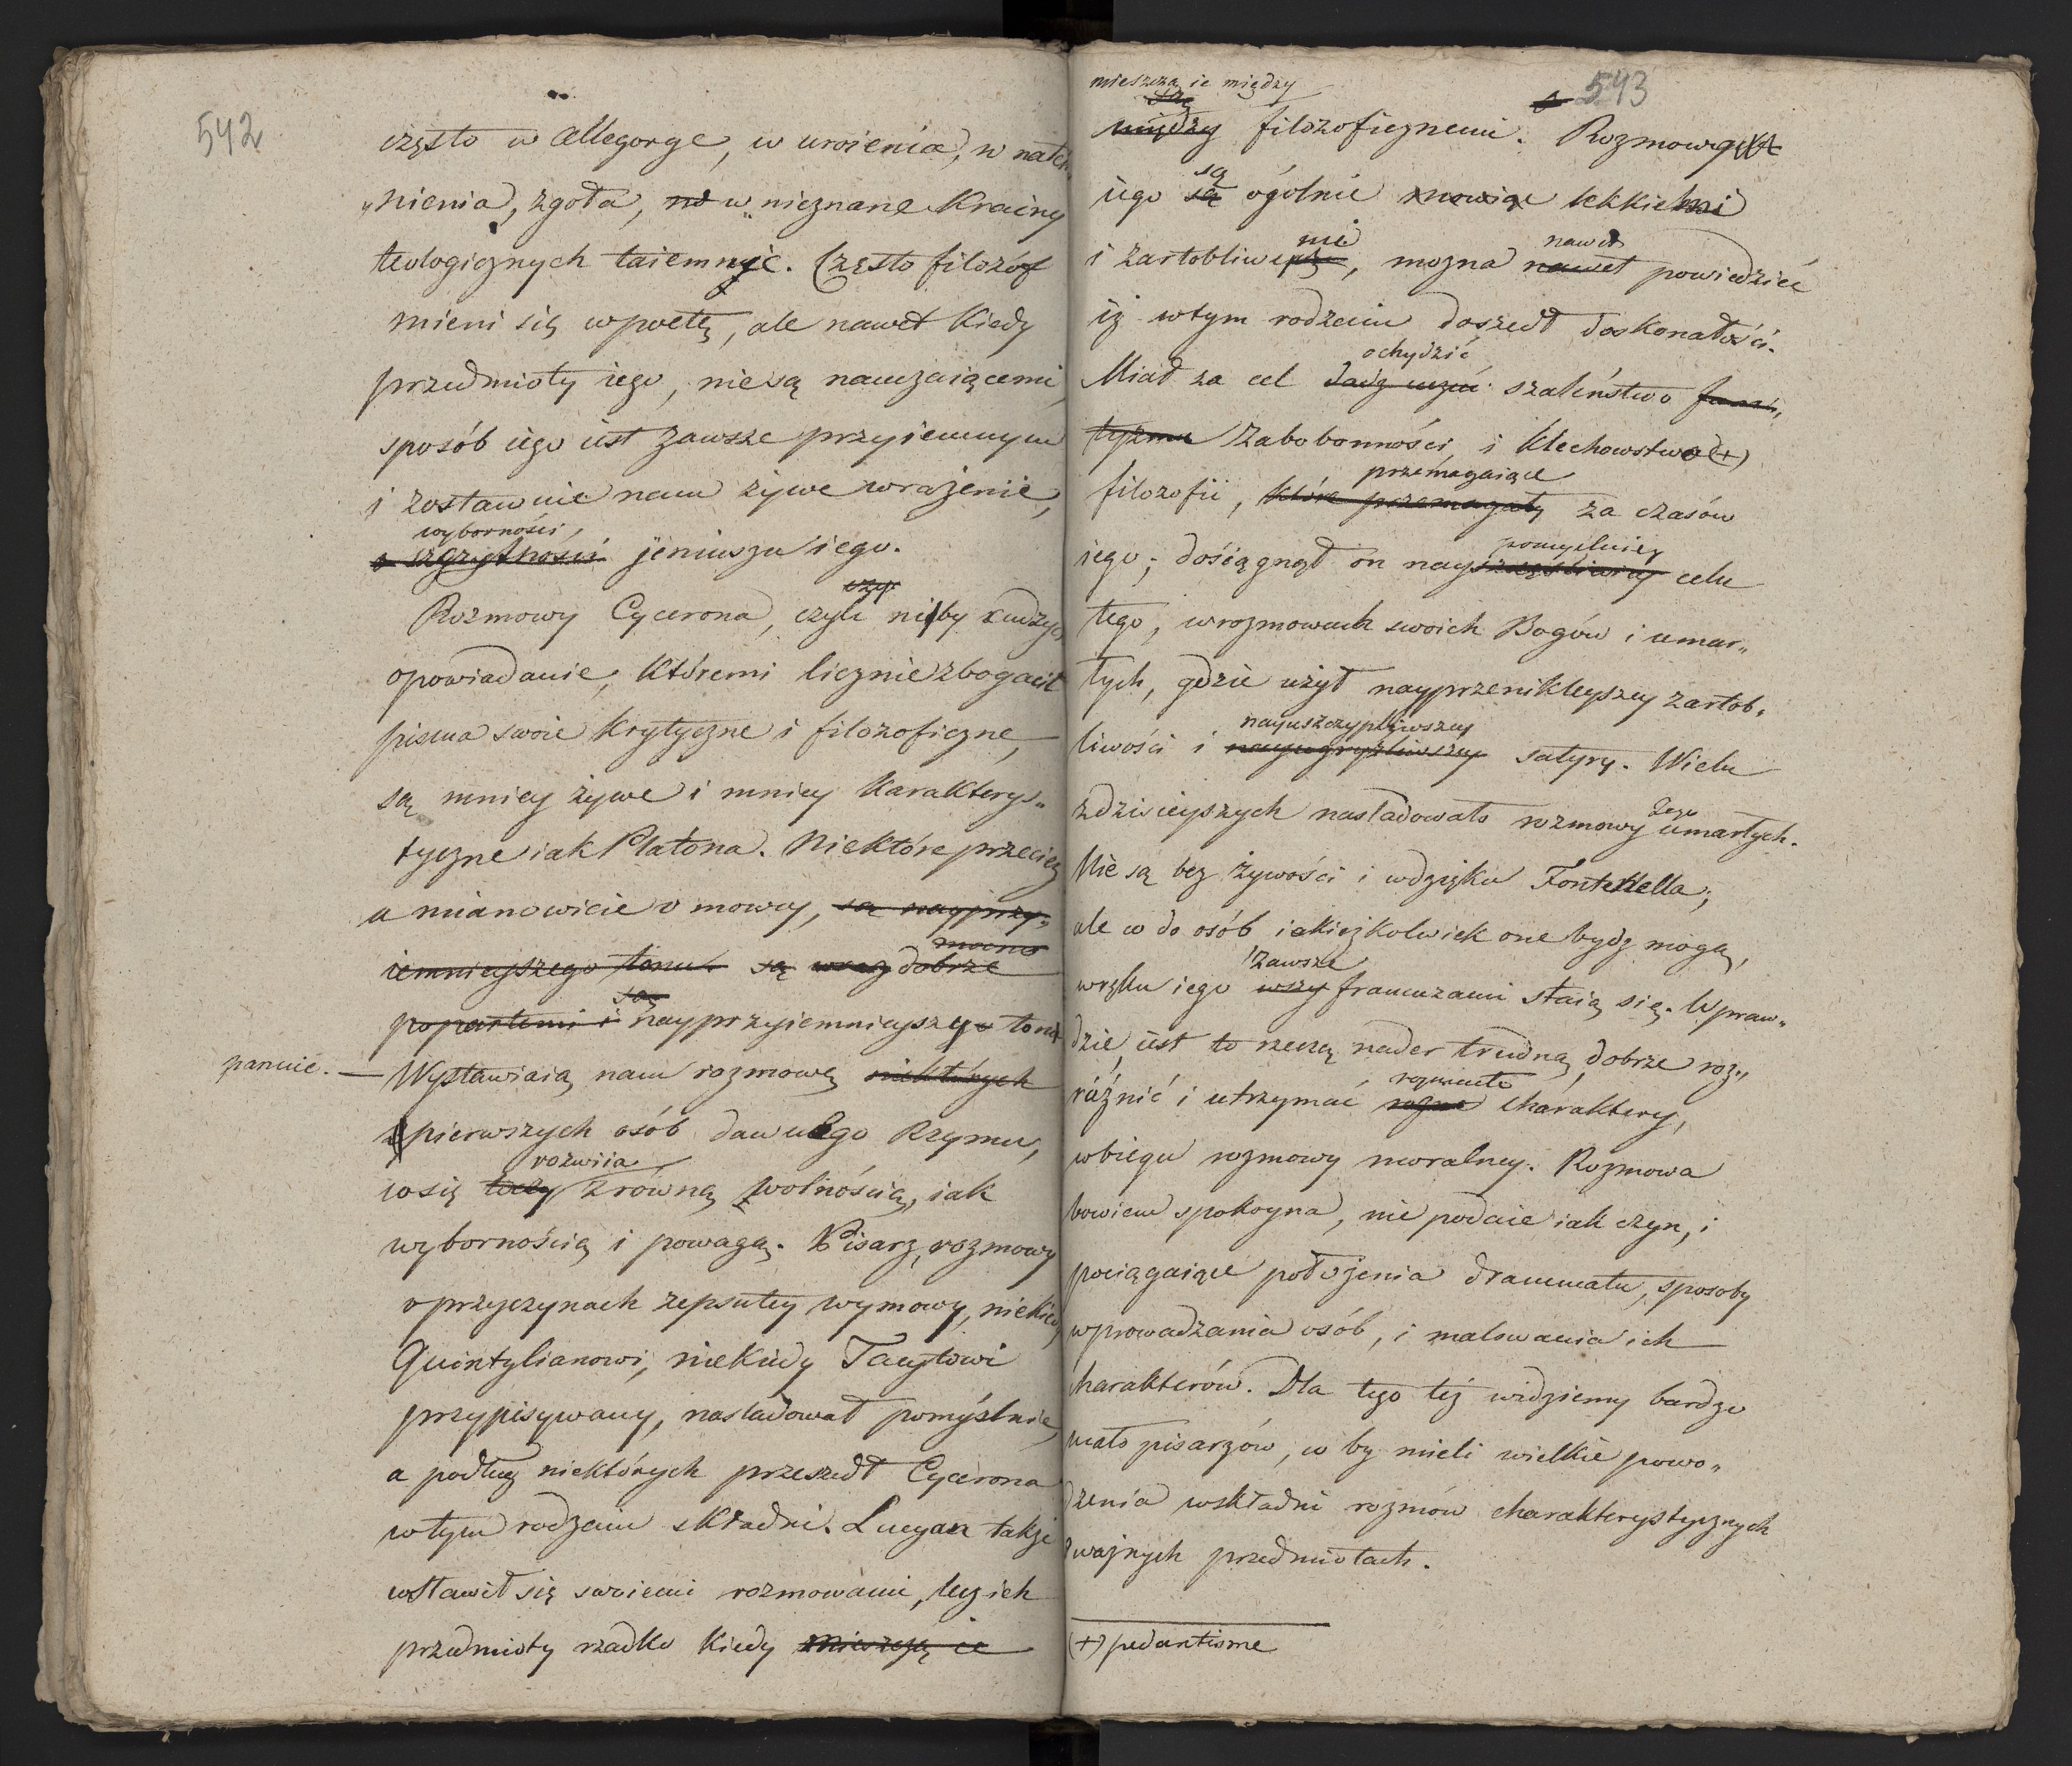 542
często w allegorye, w urojenia, w natch„
„nienia, zgoła, no w nieznane krainy
teologicznych taiemnic. Często filozóf
mieni się w poetę, ale nawet kiedy
przedmioty iego, nie są nauczaiącemi,
sposób iego iest zawsze przyiemnym
i zostawuie nam żywe wrażenie,
wyborności
jeniuszu iego.
czy
Rozmowy Cycerona, czyli niby cudzych
opowiadanie, któremi licznie zbogacił
pisma swoie krytyczne i filozoficzne,
są mniey żywe i mniey karakterys„
tyczne iak Platona. Niektóre przecież
a mianowicie o mowcy, są nayprzy„
mocno
iemnieyszego tonu. są wraz dobrze
są
popartemi i nayprzyiemnieyszego tonu
panuie. — Wystawiaią nam rozmowę niektórych
pierwszych osób dawnego Rzymu,
rozwiia
co się toczy z rowną wolnością, iak
wybornością i powagą. Pisarz, rozmowy
o przyczynach zepsutey wymowy, niekiedy
Quintylianowi, niekiedy Tacytowi
przypisywany, nasladował pomyślnie,
a podług niektórych przeszedł Cycerona
w tym rodzaiu składni. Lucyan także
wsławił się swoiemi rozmowami, lecz ich
przedmioty rzadko kiedy mieszczą ie
543
mieszczą ie między
są
między filozoficznemi. Rozmowy
są
iego są ogólnie mowiąc lekkiemi
nie nawet
i żartobliwe, mozna nawet powiedzieć
iż w tym rodzaiu doszedł doskonałości.
ochydzić
Miał za cel dadz uczuć szaleństwo fana„
tyzmu zabobonności i klechowstwo (+)
przemagaiące
filozofii, które przemagały za czasów
pomyślniey
iego; dościągnął on nayszczęśliwiey celu
tego, w rozmowach swoich Bogów i umar„
łych, gdzie użył nayprzeniklejszey żartob„
nayuszczypliwszey
liwości i nayugryźliwszey satyry. Wielu
Jego
z dzisieyszych nasladowało rozmowy umarłych.
Nie są bez żywości i wdzięku Fontenella;
ale co do osób iakieżkolwiek one bydz mogą,
zawsze
w ręku iego wszy francuzami staią się. Wpraw„
dzie, iest to rzeczą nader trudną, dobrze roz„
rozmaite
różnić i utrzymać rożne charaktery,
w biegu rozmowy moralney. Rozmowa
bowiem spokoyna, nie podaie iak czyn, i
pociągaiące położenia drammatu, sposoby
wprowadzania osób, i malowania ich
charakterów. Dla tego też widziemy bardzo
mało pisarzów, co by mieli wielkie powo„
dzenia w składni rozmów charakterystycznych
o ważnych przedmiotach.
(+) pedantisme